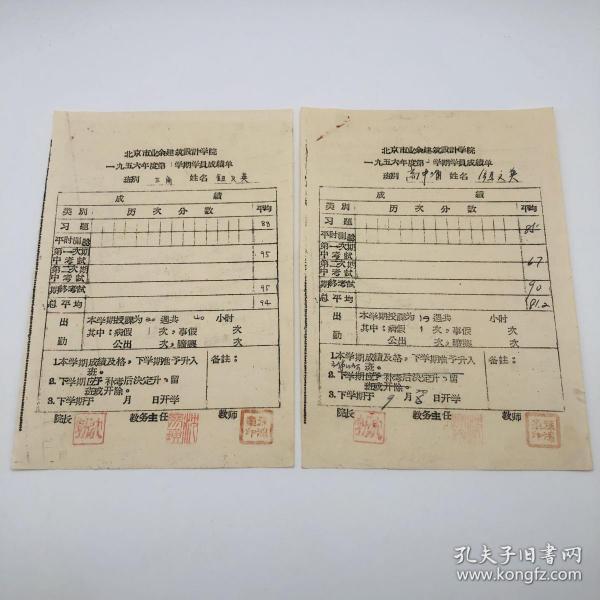 北京市业余建筑設計学院
一九五六年度第 学期学員成績单
班别 三角 姓名 文英
成 績
类别 历次分数 平均
习题 88
平时測驗
第一次期中考試 95
第二次期中考試
期終考試 95
总平均 94
出勤
本学期授課为20週共40小时
其中:病假 1 次,事假 次
公出 次,曠課 次
1.本学期成績及格,下学期准予升入
班。
2.下学期应予补考后决定升,留
班或开除。
3.下学期于 月 日开学
备註:
院长 教务主任 教师
北京市业余建筑設計学院
一九五六年度第 学期学員成績单
班别 高中 姓名 文英
成 績
类别 历次分数 平均
习题 85
平时測驗
第一次期中考試 67
第二次期中考試
期終考試 90
总平均 81.2
出勤
本学期授課为19週共 小时
其中:病假 1 次,事假 次
公出 次,曠課 次
1.本学期成績及格,下学期准予升入
班。
2.下学期应予补考后决定升,留
班或开除。
3.下学期于 9 月 8 日开学
备註:
院长 教务主任 教师
孔夫子旧书网
www.kongfz.com